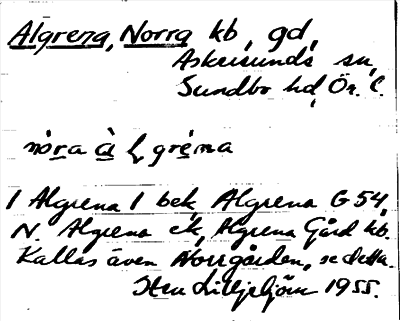 Algrena, Norra kb, gd,
Askersunds sn,
Sundbo hd, Ör. l.
nòra à l, gréna
1 Algrena 1 bek, Algrena G 54,
N. Algrena ek, Algrena Gård kb.
Kallas även Norrgården, se detta.
Sten Lilljebjörn 1955.